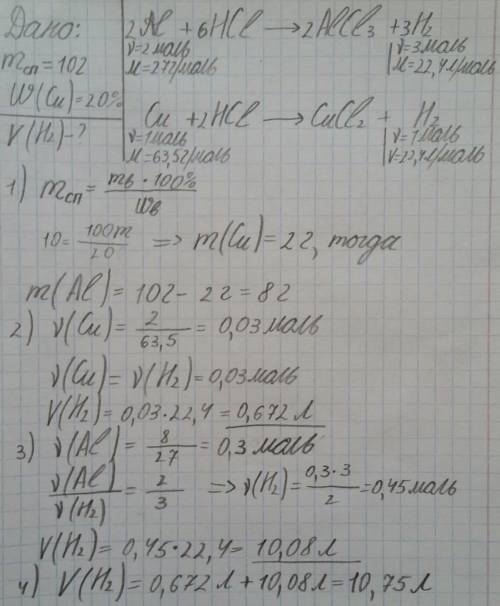 Дано:
mсп = 10г
W(Cu) = 20%
V(H₂) - ?
2Al + 6HCl → 2AlCl₃ + 3H₂
ν = 2 моль ν = 3 моль
M = 27г/моль M = 22,4л/моль
Cu + 2HCl → CuCl₂ + H₂
ν = 1 моль ν = 1 моль
M = 63,5г/моль V = 22,4л/моль
1) mсп = mв · 100% / Wв
10 = 100m / 20 => m(Cu) = 2г, тогда
m(Al) = 10г - 2г = 8г
2) ν(Cu) = 2 / 63,5 = 0,03 моль
ν(Cu) = ν(H₂) = 0,03 моль
V(H₂) = 0,03 · 22,4 = 0,672 л
3) ν(Al) = 8 / 27 = 0,3 моль
ν(Al) / ν(H₂) = 2 / 3 => ν(H₂) = 0,3 · 3 / 2 = 0,45 моль
V(H₂) = 0,45 · 22,4 = 10,08 л
4) V(H₂) = 0,672 л + 10,08 л = 10,75 л